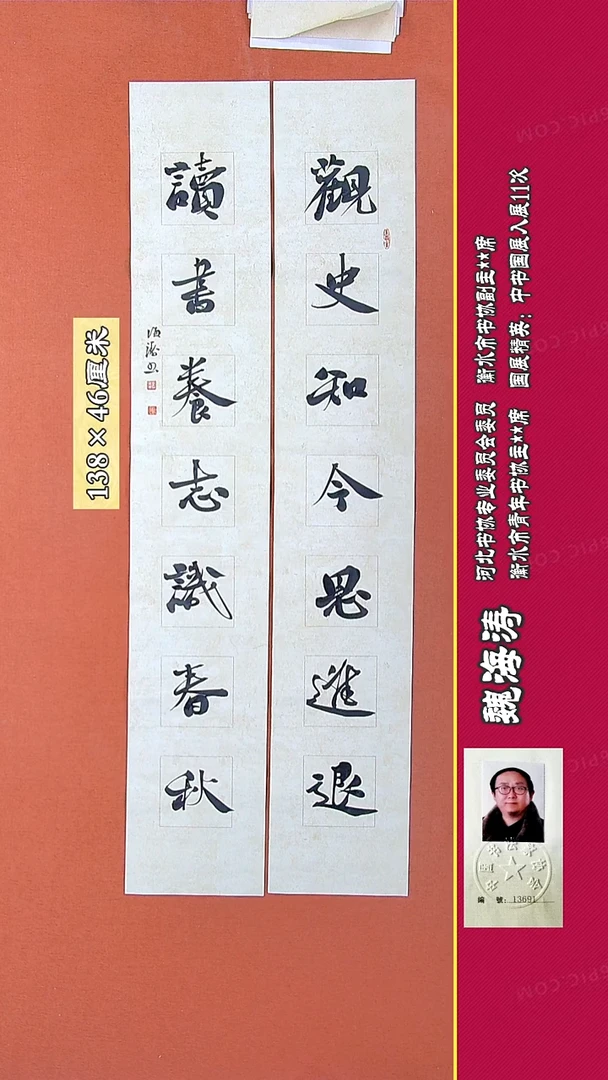 觀史知今思進退
讀書養志識春秋
海濤書
138×46厘米
河北书协专业委员会委员 衡水市书协副主**席
衡水市青年书协主**席 国展精英：中书国展入展11次
魏海涛
编 號：13691